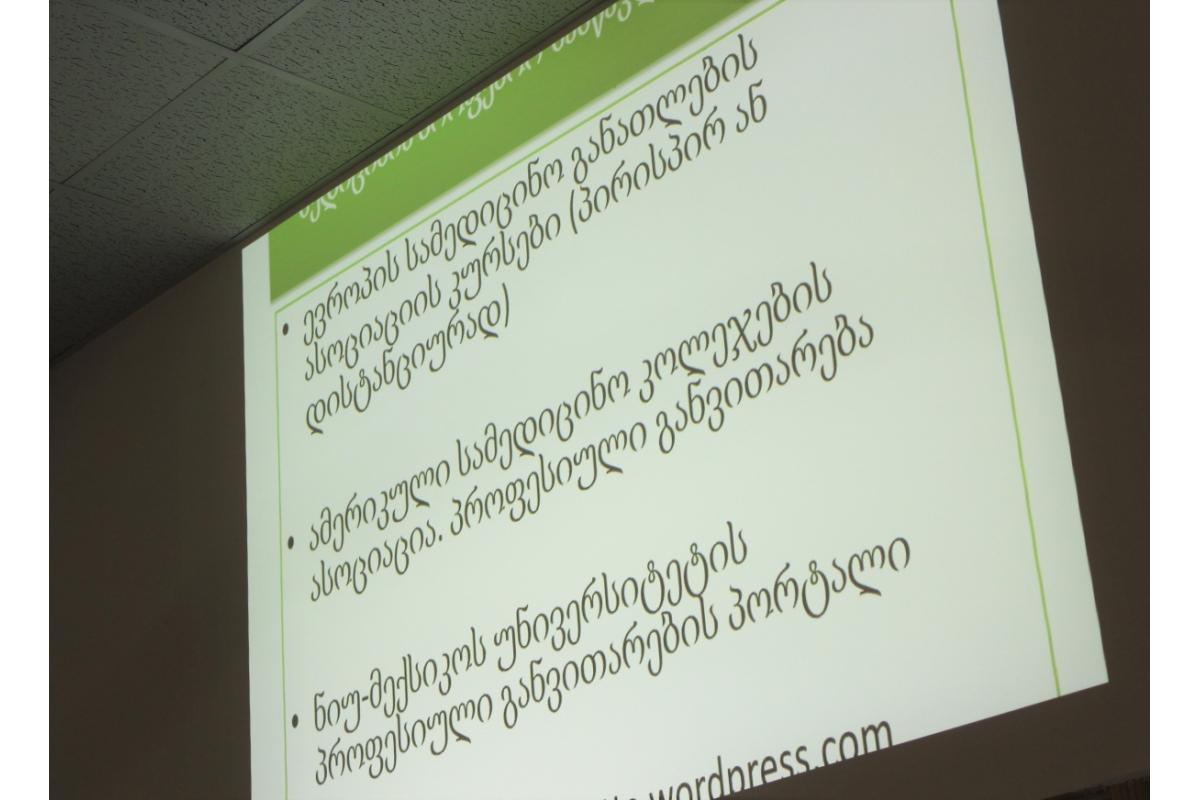 • ევროპის სამედიცინო განათლების
ასოციაციის კურსები (პირისპირ ან
დისტანციურად)
• ამერიკული სამედიცინო კოლეჯების
ასოციაცია. პროფესიული განვითარება
• ნიუ-მექსიკოს უნივერსიტეტის
პროფესიული განვითარების პორტალი
wordpress.com